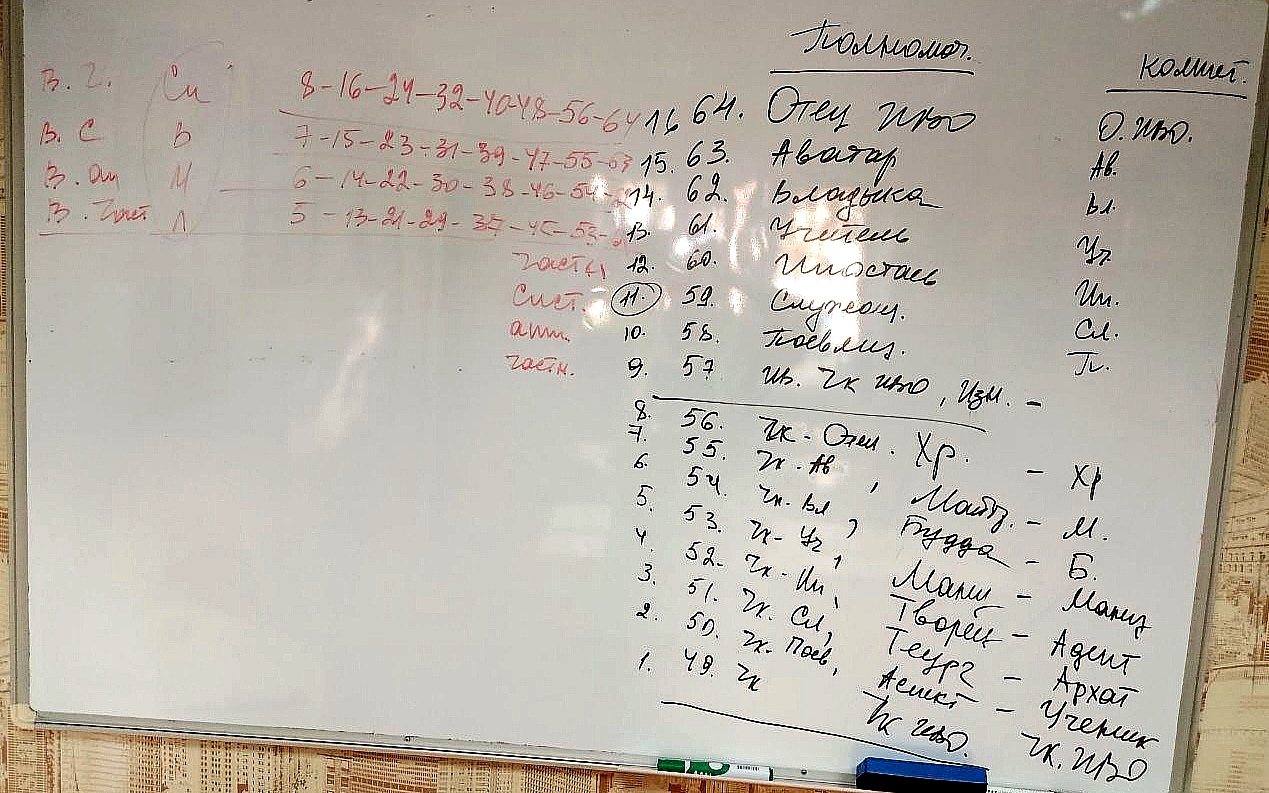 Полномоч. компет.
В. Ч. Си 8-16-24-32-40-48-56-64
В. С В 7-15-23-31-39-47-55-63
В. ап М 6-14-22-30-38-46-54-
В. Част Л 5-13-21-29-37-45-53-
16 64. Отец ИВО О. ИВО.
15. 63. Аватар Ав.
14. 62. Владыка Вл.
13. 61. Учитель Уч.
Части 12. 60. Ипостась Ип.
Сист. 11. 59. Служащ. Сл.
апп. 10. 58. Посвящ. П.
частн. 9. 57 Ив. Чк ИВО, Изн. -
8. 56. Чк - Отец. Хр. - Хр
7. 55. Чк - Ав , Майтр. - М.
6. 54. Чк - Вл , Будда - Б.
5. 53. Чк - Уч , Ману - Ману
4. 52. Чк - Ип, Творец - Адепт
3. 51. Чк. Сл, Теург - Архат
2. 50. Чк. Посв, Аспект - Ученик
1. 49. Чк Чк ИВО. Чк. ИВО